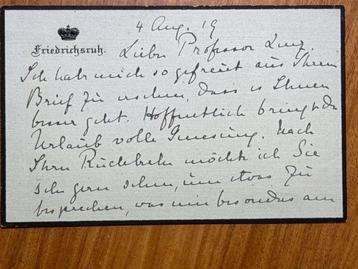 4 Aug. 19
Friedrichsruh.
Lieber Professor Lenz.
Ich habe mich so gefreut aus Ihrem
Brief zu ersehen, dass es Ihnen
besser geht. Hoffentlich bringt der
Urlaub volle Genesung. Nach
Ihrer Rückkehr möchte ich Sie
sehr gern sehen, um etwas zu
besprechen, was mir besonders am